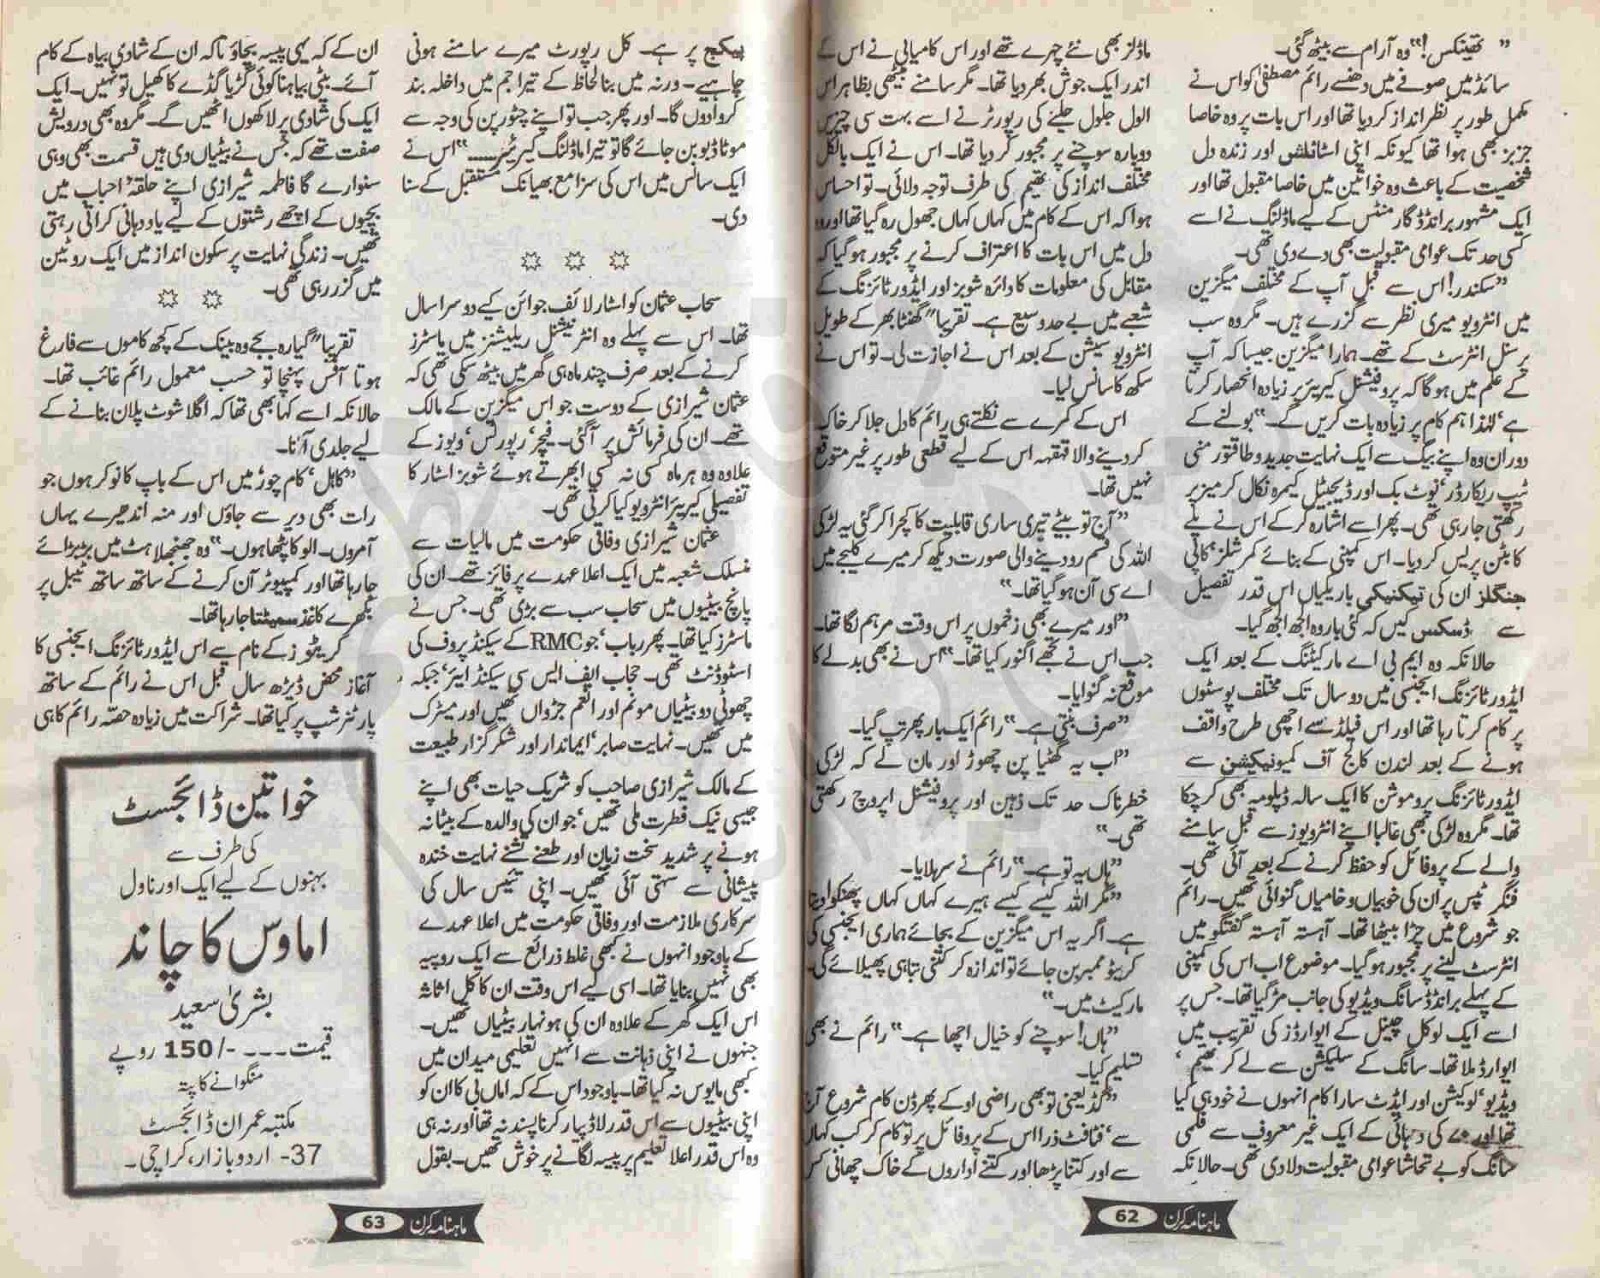 " تھینکس!" وہ آرام سے بیٹھ گئی۔
سائڈ میں صوفے میں دھنسے رائم مصطفیٰ کو اس نے
مکمل طور پر نظر انداز کر دیا تھا اور اس بات پر وہ خاصا
جزبز بھی ہوا تھا کیونکہ اپنی اسٹائلش اور زندہ دل
شخصیت کے باعث وہ خواتین میں خاصا مقبول تھا اور
ایک مشہور برانڈڈ گارمنٹس کے لیے ماڈلنگ نے اسے
کسی حد تک عوامی مقبولیت بھی دے دی تھی۔
"سکندر! اس سے قبل آپ کے مختلف میگزین
میں انٹرویو میری نظر سے گزرے ہیں۔ مگر وہ سب
پرسنل انٹرسٹ کے تھے۔ ہمارا میگزین جیسا کہ آپ
کے علم میں ہو گا کہ پروفیشنل کیریئر پر زیادہ انحصار کرتا
ہے، لہٰذا ہم کام پر زیادہ بات کریں گے۔" بولنے کے
دوران وہ اپنے بیگ سے ایک نہایت جدید و طاقتور منی
ٹیپ ریکارڈر، نوٹ بک اور ڈیجیٹل کیمرہ نکال کر میز پر
رکھتی جا رہی تھی۔ پھر اسے اشارہ کر کے اس نے پلے
کا بٹن پریس کر دیا۔ اس کمپنی کے بنائے کمرشلز، کاپی
جنگلز ان کی تیکنیکی باریکیاں اس قدر تفصیل
سے ڈسکس کیں کہ کئی بار وہ الجھ الجھ گیا۔
حالانکہ وہ ایم بی اے مارکیٹنگ کے بعد ایک
ایڈورٹائزنگ ایجنسی میں دو سال تک مختلف پوسٹوں
پر کام کرتا رہا تھا اور اس فیلڈ سے اچھی طرح واقف
ہونے کے بعد لندن کالج آف کمیونیکیشن سے
ایڈورٹائزنگ پروموشن کا ایک سالہ ڈپلومہ بھی کر چکا
تھا۔ مگر وہ لڑکی بھی غالباً اپنے انٹرویوز سے قبل سامنے
والے کے پروفائل کو حفظ کرنے کے بعد آئی تھی۔
فنگر ٹپس پر ان کی خوبیاں و خامیاں گنوائی تھیں۔ رائم
جو شروع میں چڑا بیٹھا تھا۔ آہستہ آہستہ گفتگو میں
انٹرسٹ لینے پر مجبور ہو گیا۔ موضوع اب اس کی کمپنی
کے پہلے برانڈڈ سانگ ویڈیو کی جانب مڑ گیا تھا۔ جس پر
اسے ایک لوکل چینل کے ایوارڈز کی تقریب میں
ایوارڈ ملا تھا۔ سانگ کے سلیکشن سے لے کر تھیم،
ویڈیو، لوکیشن اور ایڈٹ سارا کام انہوں نے خود ہی کیا
تھا اور ۷۰ کی دہائی کے ایک غیر معروف سے فلمی
سانگ کو بے تحاشا عوامی مقبولیت دلا دی تھی۔ حالانکہ
ماڈلز بھی نئے چہرے تھے اور اس کامیابی نے اس کے
اندر ایک جوش بھر دیا تھا۔ مگر سامنے بیٹھی بظاہر اس
الول جلول حلیے کی رپورٹر نے اسے بہت سی چیزیں
دوبارہ سوچنے پر مجبور کر دیا تھا۔ اس نے ایک بالکل
مختلف انداز کی تھیم کی طرف توجہ دلائی۔ تو احساس
ہوا کہ اس کے کام میں کہاں کہاں جھول رہ گیا تھا اور وہ
دل میں اس بات کا اعتراف کرنے پر مجبور ہو گیا کہ
مقابل کی معلومات کا دائرہ شوبز اور ایڈورٹائزنگ کے
شعبے میں بے حد وسیع ہے۔ تقریباً" گھنٹا بھر کے طویل
انٹرویو سیشن کے بعد اس نے اجازت لی۔ تو اس نے
سکھ کا سانس لیا۔
اس کے کمرے سے نکلتے ہی رائم کا دل جلا کر خاک
کر دینے والا قہقہہ اس کے لیے قطعی طور پر غیر متوقع
نہیں تھا۔
"آج تو بیٹے تیری ساری قابلیت کا کچرا کر گئی یہ لڑکی
اللہ کی قسم رو دینے والی صورت دیکھ کر میرے کلیجے میں
اے سی آن ہو گیا تھا۔"
"اور میرے بھی زخموں پر اس وقت مرہم لگا تھا۔
جب اس نے تجھے اگنور کیا تھا۔" اس نے بھی بدلے کا
موقع نہ گنوایا۔
"صرف بنتی ہے۔" رائم ایک بار پھر تپ گیا۔
"اب یہ گھٹیا پن چھوڑ اور مان لے کہ لڑکی
خطرناک حد تک ذہین اور پروفیشنل اپروچ رکھتی
تھی۔"
"ہاں یہ تو ہے۔" رائم نے سر ہلایا۔
"مگر اللہ کیسے کیسے ہیرے کہاں کہاں پھنکوا دیتا
ہے۔ اگر یہ اس میگزین کے بجائے ہماری ایجنسی کی
کریٹو ممبر بن جائے تو اندازہ کر کتنی تباہی پھیلائے گی۔
مارکیٹ میں۔"
"ہاں! سوچنے کو خیال اچھا ہے۔" رائم نے بھی
تسلیم کیا۔
"گڈ یعنی تو بھی راضی او کے پھر ڈن کام شروع آج
سے، فٹافٹ ذرا اس کے پروفائل پر تو کام کر کب کہاں
سے اور کتنا پڑھا اور کتنے اداروں کے خاک چھانی کس
ماہنامہ کرن 62
پیکج پر ہے۔ کل رپورٹ میرے سامنے ہونی
چاہیے۔ ورنہ میں بنا لحاظ کے تیرا جم میں داخلہ بند
کروا دوں گا۔ اور پھر جب تو اپنے چٹورپن کی وجہ سے
موٹا ڈبو بن جائے گا تو تیرا ماڈلنگ کیریئر۔۔۔۔" اس نے
ایک سانس میں اس کی سزا مع بھیانک مستقبل کے سنا
دی۔
سحاب عثمان کو اسٹار لائف جوائن کیے دوسرا سال
تھا۔ اس سے پہلے وہ انٹر نیشنل ریلیشنز میں ماسٹرز
کرنے کے بعد صرف چند ماہ ہی گھر میں بیٹھ سکی تھی کہ
عثمان شیرازی کے دوست جو اس میگزین کے مالک
تھے۔ ان کی فرمائش پر آ گئی۔ فیچر، رپورٹس، ویوز کے
علاوہ وہ ہر ماہ کسی نہ کسی ابھرتے ہوئے شوبز اسٹار کا
تفصیلی کیریئر انٹرویو کیا کرتی تھی۔
عثمان شیرازی وفاقی حکومت میں مالیات سے
منسلک شعبہ میں ایک اعلا عہدے پر فائز تھے۔ ان کی
پانچ بیٹیوں میں سحاب سب سے بڑی تھی۔ جس نے
ماسٹرز کیا تھا۔ پھر رباب، جو RMC کے سیکنڈ پروف کی
اسٹوڈنٹ تھی۔ حجاب ایف ایس سی سیکنڈ ایئر، جبکہ
چھوٹی دو بیٹیاں مونم اور اقعم جڑواں تھیں اور میٹرک
میں تھیں۔ نہایت صابر، ایماندار اور شکر گزار طبیعت
کے مالک شیرازی صاحب کو شریک حیات بھی اپنے
جیسی نیک فطرت ملی تھیں، جو ان کی والدہ کے بیٹا نہ
ہونے پر شدید سخت زبان اور طعنے تشنے نہایت خندہ
پیشانی سے سہتی آئی تھیں۔ اپنی تئیس سال کی
سرکاری ملازمت اور وفاقی حکومت میں اعلا عہدے
کے باوجود انہوں نے کبھی غلط ذرائع سے ایک روپیہ
بھی نہیں بنایا تھا۔ اسی لیے اس وقت ان کا کل اثاثہ
اس ایک گھر کے علاوہ ان کی ہونہار بیٹیاں تھیں۔
جنہوں نے اپنی ذہانت سے انہیں تعلیمی میدان میں
کبھی مایوس نہ کیا تھا۔ باوجود اس کے کہ اماں بی کا ان کو
اپنی بیٹیوں سے اس قدر لاڈ پیار کرنا پسند نہ تھا اور نہ ہی
وہ اس قدر اعلا تعلیم پر پیسہ لگانے پر خوش تھیں۔ بقول
ان کے کہ یہی پیسہ بچاؤ تاکہ ان کے شادی بیاہ کے کام
آئے۔ بیٹی بیاہنا کوئی گڑیا گڈے کا کھیل تو نہیں۔ ایک
ایک کی شادی پر لاکھوں اٹھیں گے۔ مگر وہ بھی درویش
صفت تھے کہ جس نے بیٹیاں دی ہیں قسمت بھی وہی
سنوارے گا فاطمہ شیرازی اپنے حلقہ احباب میں
بچیوں کے اچھے رشتوں کے لیے یاد دہانی کراتی رہتی
تھیں۔ زندگی نہایت پر سکون انداز میں ایک روٹین
میں گزر رہی تھی۔
تقریباً" گیارہ بجے وہ بینک کے کچھ کاموں سے فارغ
ہوتا آفس پہنچا تو حسب معمول رائم غائب تھا۔
حالانکہ اسے کہا بھی تھا کہ اگلا شوٹ پلان بنانے کے
لیے جلدی آنا۔
"کاہل، کام چوڑ میں اس کے باپ کا نوکر ہوں جو
رات بھی دیر سے جاؤں اور منہ اندھیرے یہاں
آ مروں۔ الو کا پٹھا ہوں۔" وہ جھنجھلاہٹ میں بڑبڑائے
جا رہا تھا اور کمپیوٹر آن کرنے کے ساتھ ساتھ ٹیبل پر
بکھرے کاغذ سمیٹتا جا رہا تھا۔
کریٹوز کے نام سے اس ایڈورٹائزنگ ایجنسی کا
آغاز محض ڈیڑھ سال قبل اس نے رائم کے ساتھ
پارٹنر شپ پر کیا تھا۔ شراکت میں زیادہ حصہ رائم کا ہی
خواتین ڈائجسٹ
کی طرف سے
بہنوں کے لیے ایک اور ناول
اماوس کا چاند
بشریٰ سعید
قیمت۔۔۔۔ 150/- روپے
منگوانے کا پتہ
مکتبہ عمران ڈائجسٹ
37- اردو بازار، کراچی۔
ماہنامہ کرن 63